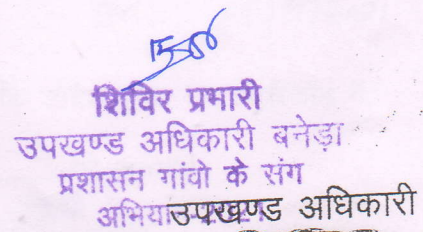 शिविर प्रभारी
उपखण्ड अधिकारी बनेड़ा
प्रशासन गांवो के संग
उपखण्ड अधिकारी